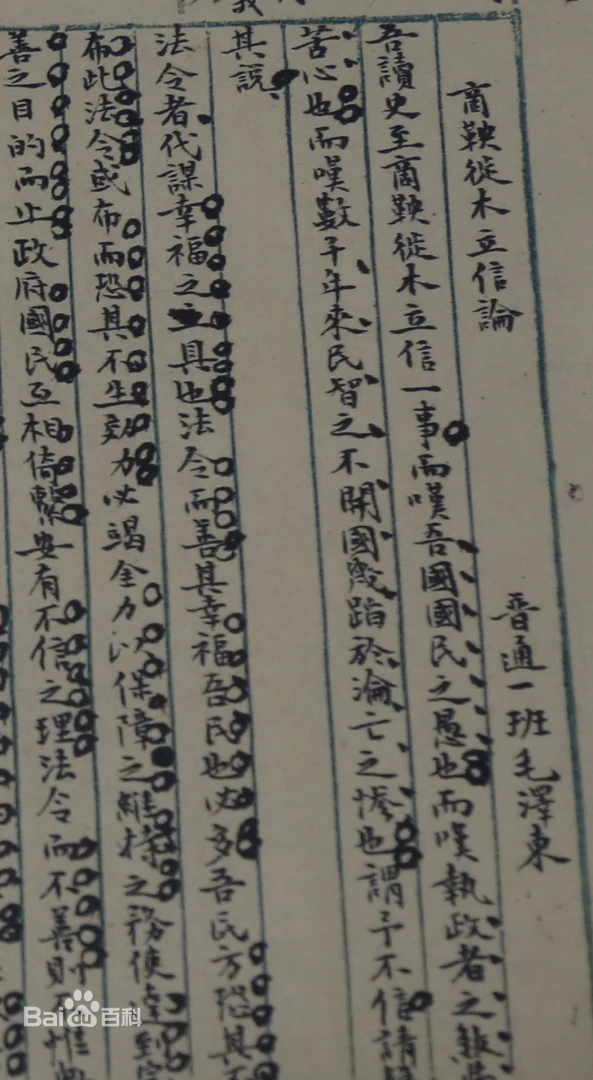 商鞅徙木立信論
普通一班毛澤東
吾讀史至商鞅徙木立信一事而嘆吾國國民之愚也而嘆執政者之煞
苦心也而嘆數千年來民智之不開國幾蹈於淪亡之慘也謂予不信請
其說
法令者代謀幸福之具也法令而善其幸福吾民也必多吾民方恐其不
布此法令或布而恐其不生効力必竭全力以保障之維持之務使達到完
善之目的而止政府國民互相倚繫安有不信之理法令而不善則不惟
Baidu百科